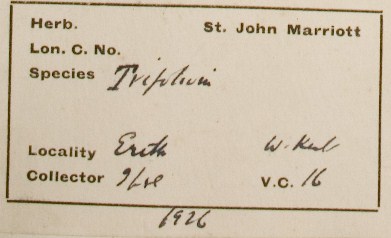 Herb. St. John Marriott
Lon. C. No.
Species Trifolium
Locality Erith W. Kent
Collector V.C. 16
1926